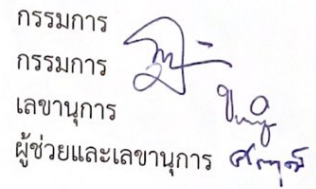 กรรมการ
กรรมการ
เลขานุการ
ผู้ช่วยและเลขานุการ